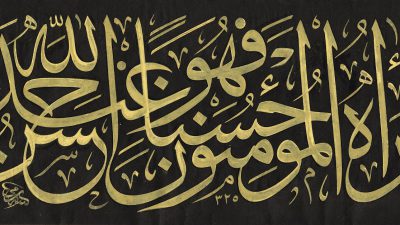 رأه المؤمنون حسناً فهو عند الله حسن
٣٢٥